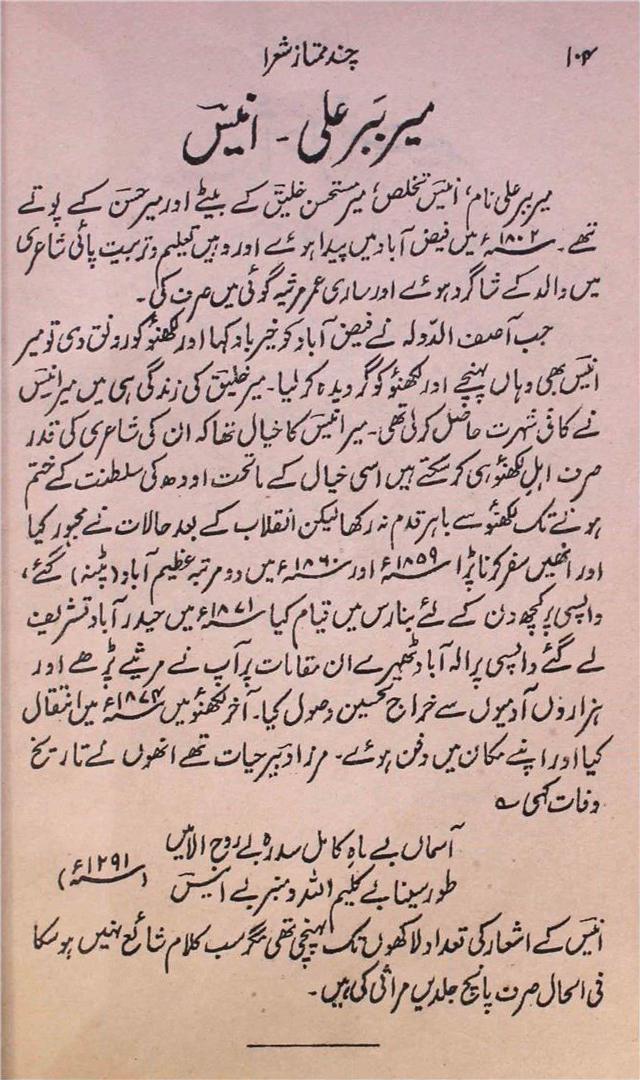 ۱۰۴ چند ممتاز شعرا
میر ببر علی - انیسؔ
میر ببر علی نام، انیسؔ تخلص، میر مستحسن خلیقؔ کے بیٹے اور میر حسنؔ کے پوتے
تھے۔ ۱۸۰۲ء میں فیض آباد میں پیدا ہوئے اور وہیں تعلیم و تربیت پائی شاعری
میں والد کے شاگرد ہوئے اور ساری عمر مرثیہ گوئی میں صرف کی۔
جب آصف الدّولہ نے فیض آباد کو خیرباد کہا اور لکھنؤ کو رونق دی تو میر
انیسؔ بھی وہاں پہنچے اور لکھنؤ کو گرویدہ کر لیا۔ میر خلیقؔ کی زندگی ہی میں میر انیسؔ
نے کافی شہرت حاصل کر لی تھی۔ میر انیسؔ کا خیال تھا کہ ان کی شاعری کی قدر
صرف اہلِ لکھنؤ ہی کر سکتے ہیں اسی خیال کے ماتحت اودھ کی سلطنت کے ختم
ہونے تک لکھنؤ سے باہر قدم نہ رکھا لیکن انقلاب کے بعد حالات نے مجبور کیا
اور انھیں سفر کرنا پڑا ۱۸۵۹ء اور ۱۸۶۰ء میں دو مرتبہ عظیم آباد (پٹنہ) گئے،
واپسی پر کچھ دن کے لئے بنارس میں قیام کیا ۱۸۷۱ء میں حیدر آباد تشریف
لے گئے واپسی پر الہ آباد ٹھیرے ان مقامات پر آپ نے مرثیے پڑھے اور
ہزاروں آدمیوں سے خراج تحسین وصول کیا۔ آخر لکھنؤ میں ۱۸۷۴ء میں انتقال
کیا اور اپنے مکان میں دفن ہوئے۔ مرزا دبیر حیات تھے انھوں نے تاریخ
وفات کہی ؎
آسماں بے ماہِ کامل سدرہ بے روح الامیں
طور سینا بے کلیم اللہ و منبر بے انیسؔ (۱۲۹۱ء)
انیسؔ کے اشعار کی تعداد لاکھوں تک پہنچی تھی مگر سب کلام شائع نہیں ہو سکا
فی الحال صرف پانچ جلدیں مراثی کی ہیں۔